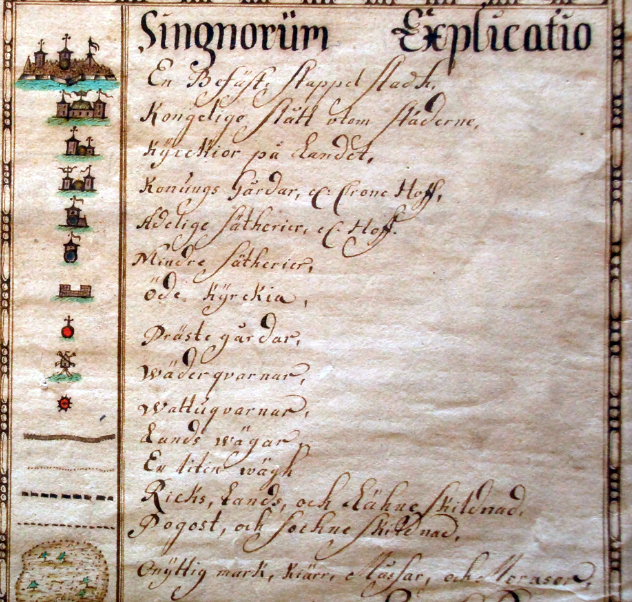 Singnorüm Explicatio
En Befäst, Stappel Stadt,
Kongelige Slått utom städerne,
Kÿrckior på Landet,
Konungs Gårdar, & Crono Hoff,
Adelige Sätherier, & Hoff.
Mindre Sätherier,
Öde Kÿrckia,
Präste gårdar,
Wäderqvarnar,
Wattuqvarnar,
Lands wägar,
En liten wägh
Ricks, Lands, och Lähne skildnad,
Pogost, och Sochne skildnad,
Onÿttig mark, Kiärr, Måssar, och Morasser,